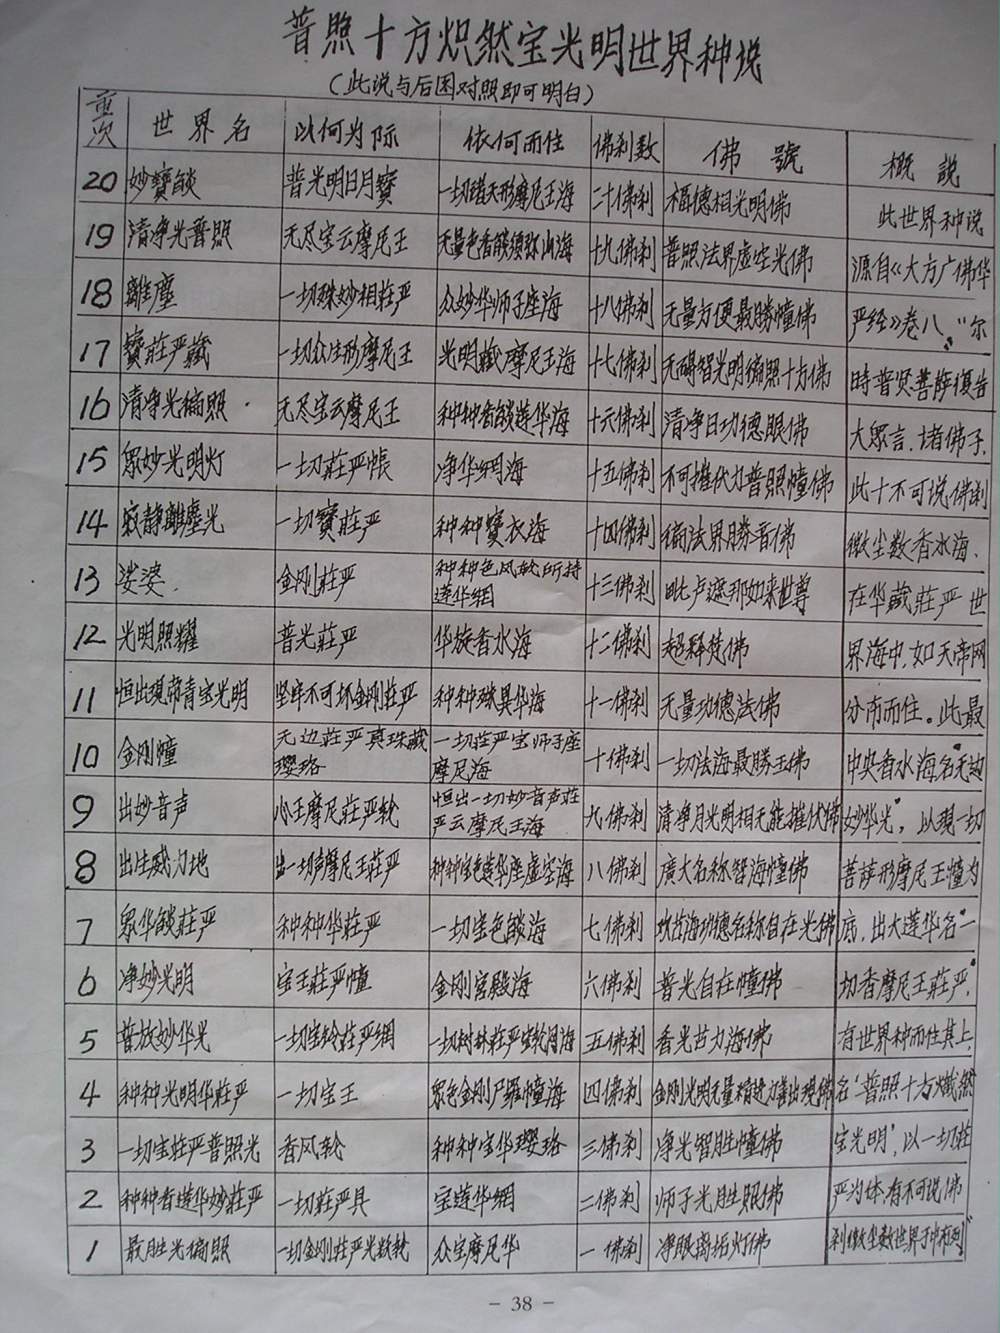 普照十方炽然宝光明世界种说
(此说与后图对照即可明白)
重次 世界名 以何为际 依何而住 佛刹数 佛號 概说
20 妙寶燄 普光明日月寶 一切諸天形摩尼王海 二十佛刹 福德相光明佛 此世界种说
19 清净光普照 无尽宝云摩尼王 无量色香燄须弥山海 十九佛刹 普照法界虚空光佛 源自《大方广佛华
18 離塵 一切殊妙相莊严 众妙华师子座海 十八佛刹 无量方便最勝幢佛 严经》卷八、“尔
17 寶莊严藏 一切众生形摩尼王 光明藏摩尼王海 十七佛刹 无碍智光明徧照十方佛 時普贤菩萨復告
16 清净光徧照 无尽宝云摩尼王 种种香燄莲华海 十六佛刹 清净日功德眼佛 大眾言，诸佛子，
15 眾妙光明灯 一切莊严帳 净华網海 十五佛刹 不可摧伏力普照幢佛 此十不可说佛刹
14 寂静離塵光 一切寶莊严 种种寶衣海 十四佛刹 徧法界勝音佛 微尘数香水海，
13 娑婆 金刚莊严 种种色风轮所持莲华網 十三佛刹 毗卢遮那如来世尊 在华藏莊严世
12 光明照耀 普光莊严 华旋香水海 十二佛刹 超释梵佛 界海中，如天帝网
11 恒出現帝青宝光明 坚牢不可坏金刚莊严 种种殊異华海 十一佛刹 无量功德法佛 分布而住。此最
10 金刚幢 无边莊严真珠藏璎珞 一切莊严宝师子座摩尼海 十佛刹 一切法海最勝王佛 中央香水海，名“无边
9 出妙音声 心王摩尼莊严轮 恒出一切妙音声莊严云摩尼王海 九佛刹 清净月光明相无能摧伏佛 妙华光”，以现一切
8 出生威力地 出一切声摩尼王莊严 种种宝色莲华座虚空海 八佛刹 廣大名称智海幢佛 菩萨形摩尼王幢为
7 眾华燄莊严 种种华莊严 一切宝色燄海 七佛刹 欢喜海功德名称自在光佛 底，出大莲华名“一
6 净妙光明 宝王莊严幢 金刚宮殿海 六佛刹 普光自在幢佛 切香摩尼王莊严”，
5 普放妙华光 一切宝铃莊严網 一切树林莊严宝轮网海 五佛刹 香光喜力海佛 有世界种而住其上，
4 种种光明华莊严 一切宝王 眾色金刚尸罗幢海 四佛刹 金刚光明无量精进力善出现佛 名‘普照十方熾然
3 一切宝莊严普照光 香风轮 种种宝华璎珞 三佛刹 净光智胜幢佛 宝光明’，以一切莊
2 种种香莲华妙莊严 一切莊严具 宝莲华網 二佛刹 师子光胜照佛 严为体，有不可说佛
1 最胜光徧照 一切金刚莊严光耀轮 众宝摩尼华 一佛刹 净眼离垢灯佛 刹微尘数世界于中布列”
- 38 -